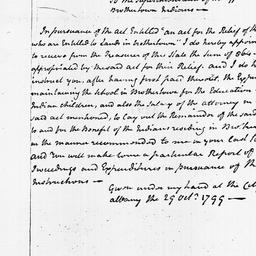 To the Superintendents of the
Brothertown Indians —
In pursuance of the Act Entitled "an act for the Relief of the
who are Entitled to lands in Brothertown" I do hereby appoin
to receive from the Treasurer of this State the Sum of
appropriated by the said act for their Relief. And I do h
instruct you, after having first paid thereout, the Expen
maintaining the School in Brothertown for the Education
Indian children, and also the Salary of the attorney in
said act mentioned, to lay out the Remainder of the said
to and for the Benefit of the Indians residing in Brother
in the manner recommended to me in your last
and You will make me a particular Report of
Proceedings and Expenditures in pursuance of th
Instructions —
Given under my hand at the Cit
albany the 29 Octr. 1799 —